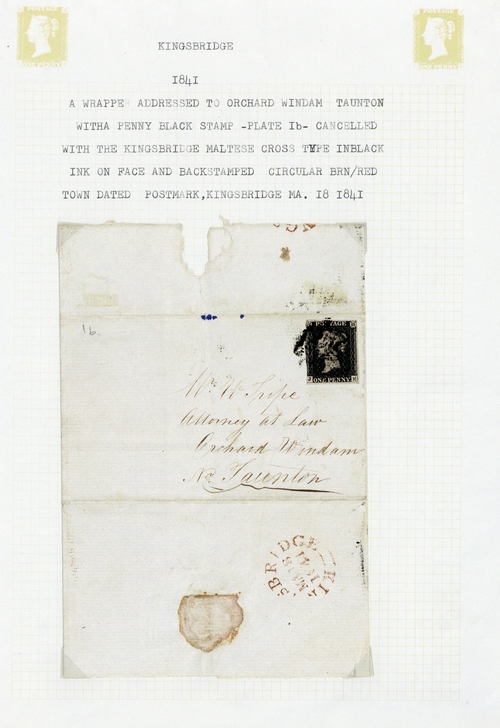 KINGSBRIDGE
1841
A WRAPPE ADDRESSED TO ORCHARD WINDAM TAUNTON
WITHA PENNY BLACK STAMP -PLATE Ib- CANCELLED
WITH THE KINGSBRIDGE MALTESE CROSS TYPE INBLACK
INK ON FACE AND BACKSTAMPED CIRCULAR BRN/RED
TOWN DATED POSTMARK,KINGSBRIDGE MA. I8 I84I
1b.
POSTAGE
ONE PENNY
Attorney at Law
Orchard Windam
Nr Taunton